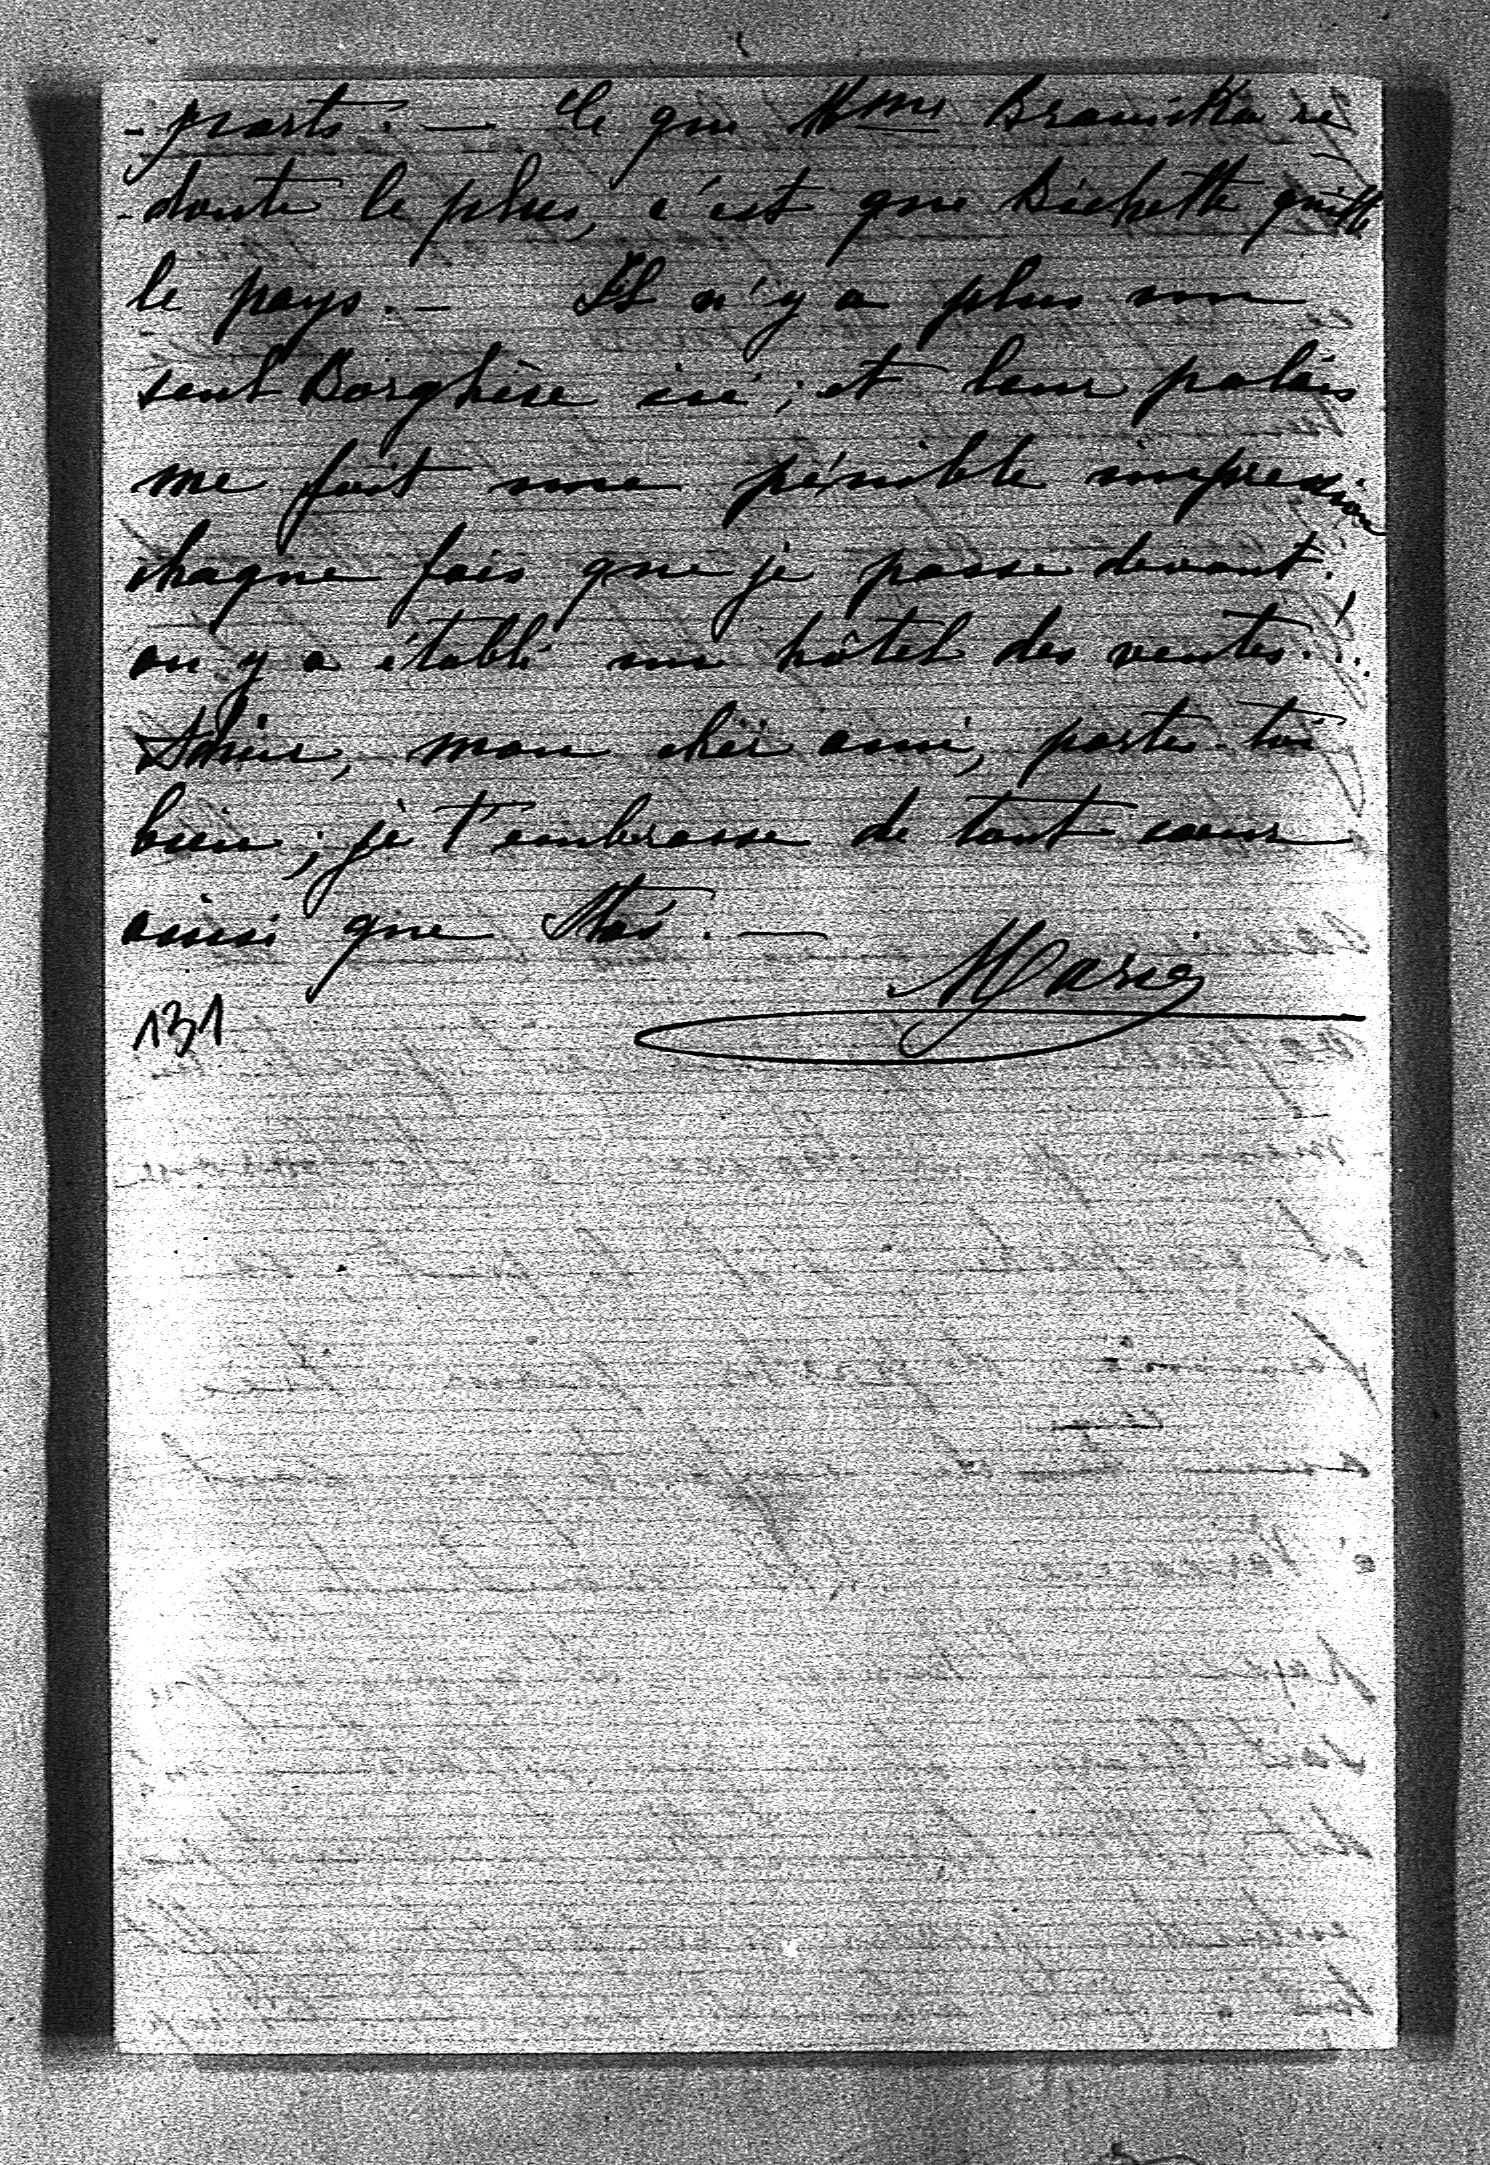 -ports. — Ce que Mme Branicka re
-doute le plus, c'est que Bichette quitte
le pays. — Il n'y a plus un
seul Borghèse ici ; et leur palais
me fait une pénible impression
chaque fois que je passe devant.
on y a établi un hôtel des ventes...!
Adieu, mon cher ami, portes-toi
bien ; je t'embrasse de tout cœur
ainsi que Stas. —
Marie
131